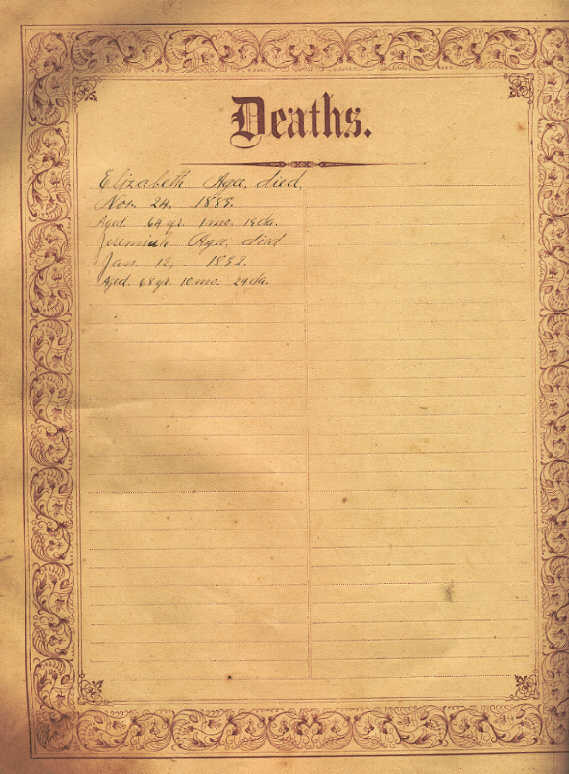 Deaths.
Elizabeth Agee, died
Nov. 24, 1889.
Aged 64 yr. 1 mo. 18 da.
Jeremiah Agee, died
Jan. 12, 1892.
Aged 68 yr. 10 mo. 29 da.